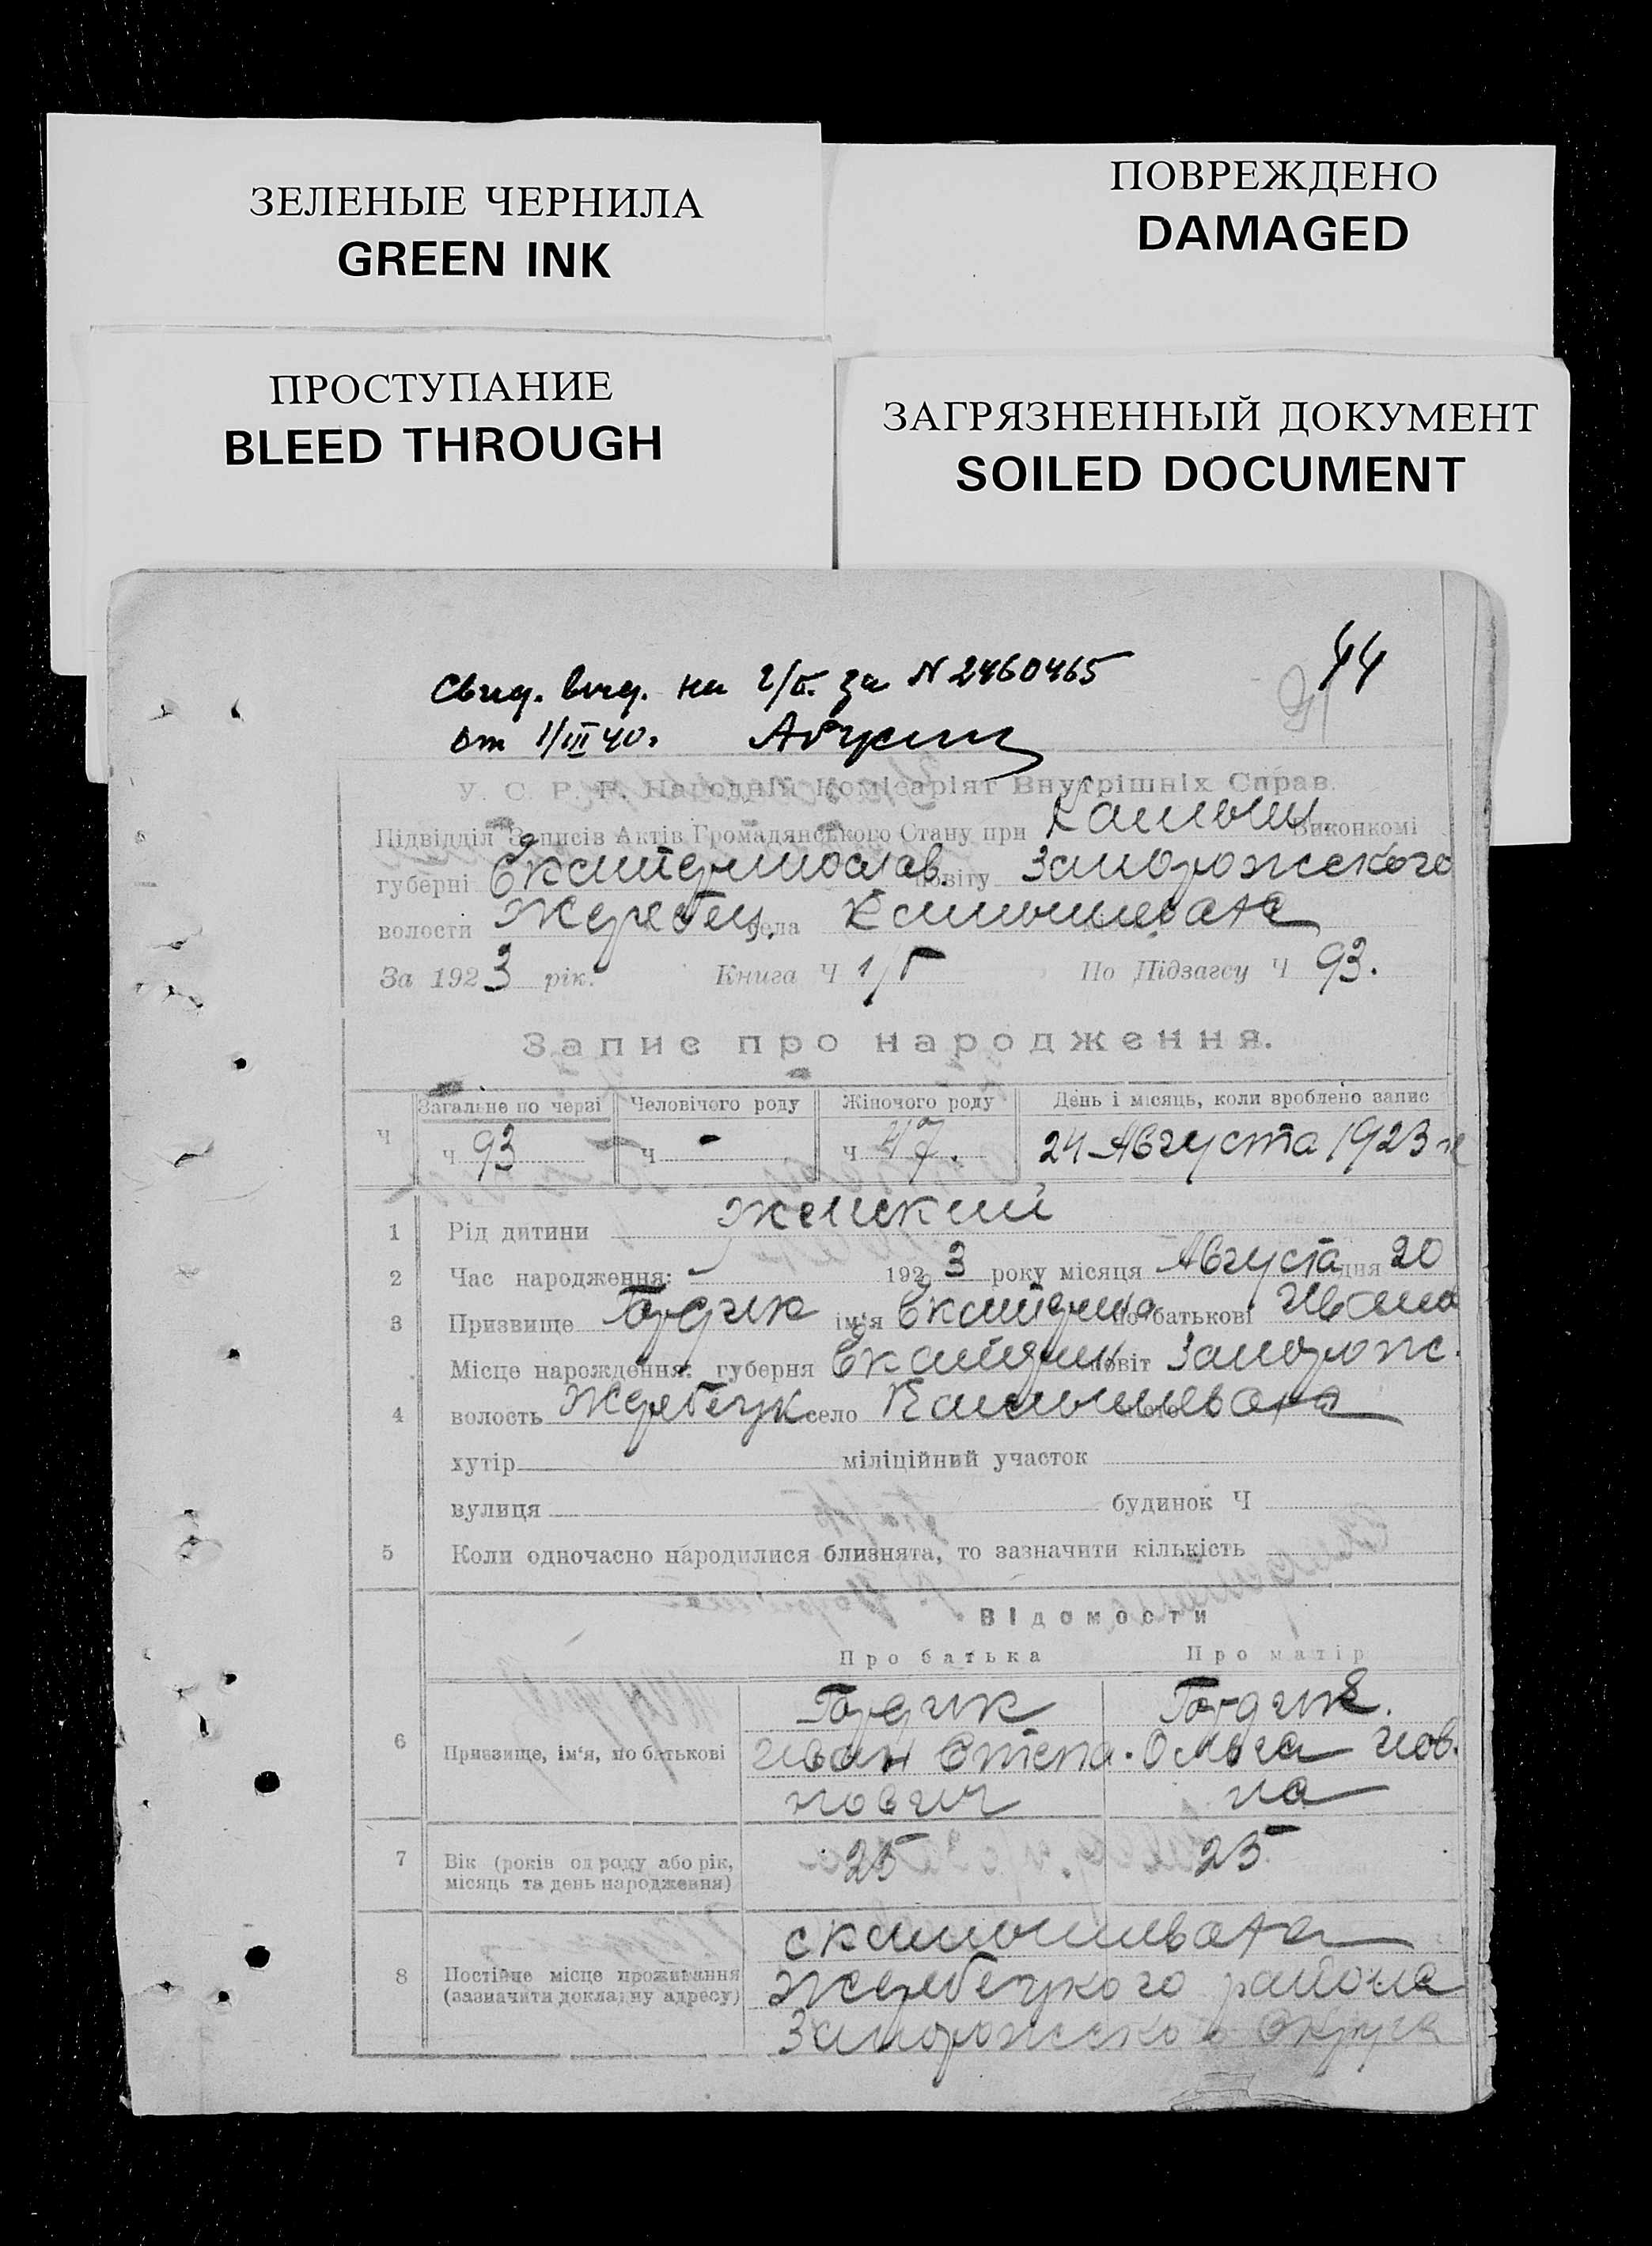 ЗЕЛЕНЫЕ ЧЕРНИЛА
GREEN INK
ПОВРЕЖДЕНО
DAMAGED
ПРОСТУПАНИЕ
BLEED THROUGH
ЗАГРЯЗНЕННЫЙ ДОКУМЕНТ
SOILED DOCUMENT
44
Свид. выд. на 2/б. за N 2460465
от 1/III 40.
У. С. Р. Р. Народній Комісаріят Внутрішніх Справ.
Підвідділ Записів Актів Громадянського Стану при Камыш. Виконкомі
губерні Екатеринослав. повіту Запорожского
волости Жеребец. села Камышеваха
За 1923 рік. Книга Ч 1/Г По Підзагсу Ч 93.
Запис про народження.
Ч Загальне по черзі Человічого роду Жіночого роду День і місяць, коли зроблено запис
ч 93 ч - ч 47. 24 Августа 1923 г
1 Рід дитини женский
2 Час народження: 1923 року місяця Августа дня 20
3 Призвище Гордик ім'я Екатерина по батькові Ивана
Місце нарождення: губерня Екатерин повіт Запорож.
4 волость Жеребецк село Камышеваха
хутір міліційний участок
вулиця будинок Ч
5 Коли одночасно народилися близнята, то зазначити кількість
Відомости
Про батька Про матір
Гордик Гордик.
6 Призвище, ім'я, по батькові Иван Степа- Ольга
нович на
7 Вік (років од роду або рік, 25 25
місяць та день народження)
с Камышеваха
8 Постійне місце проживання Жеребецкого района
(зазначити докладну адресу) Запорожского Округа